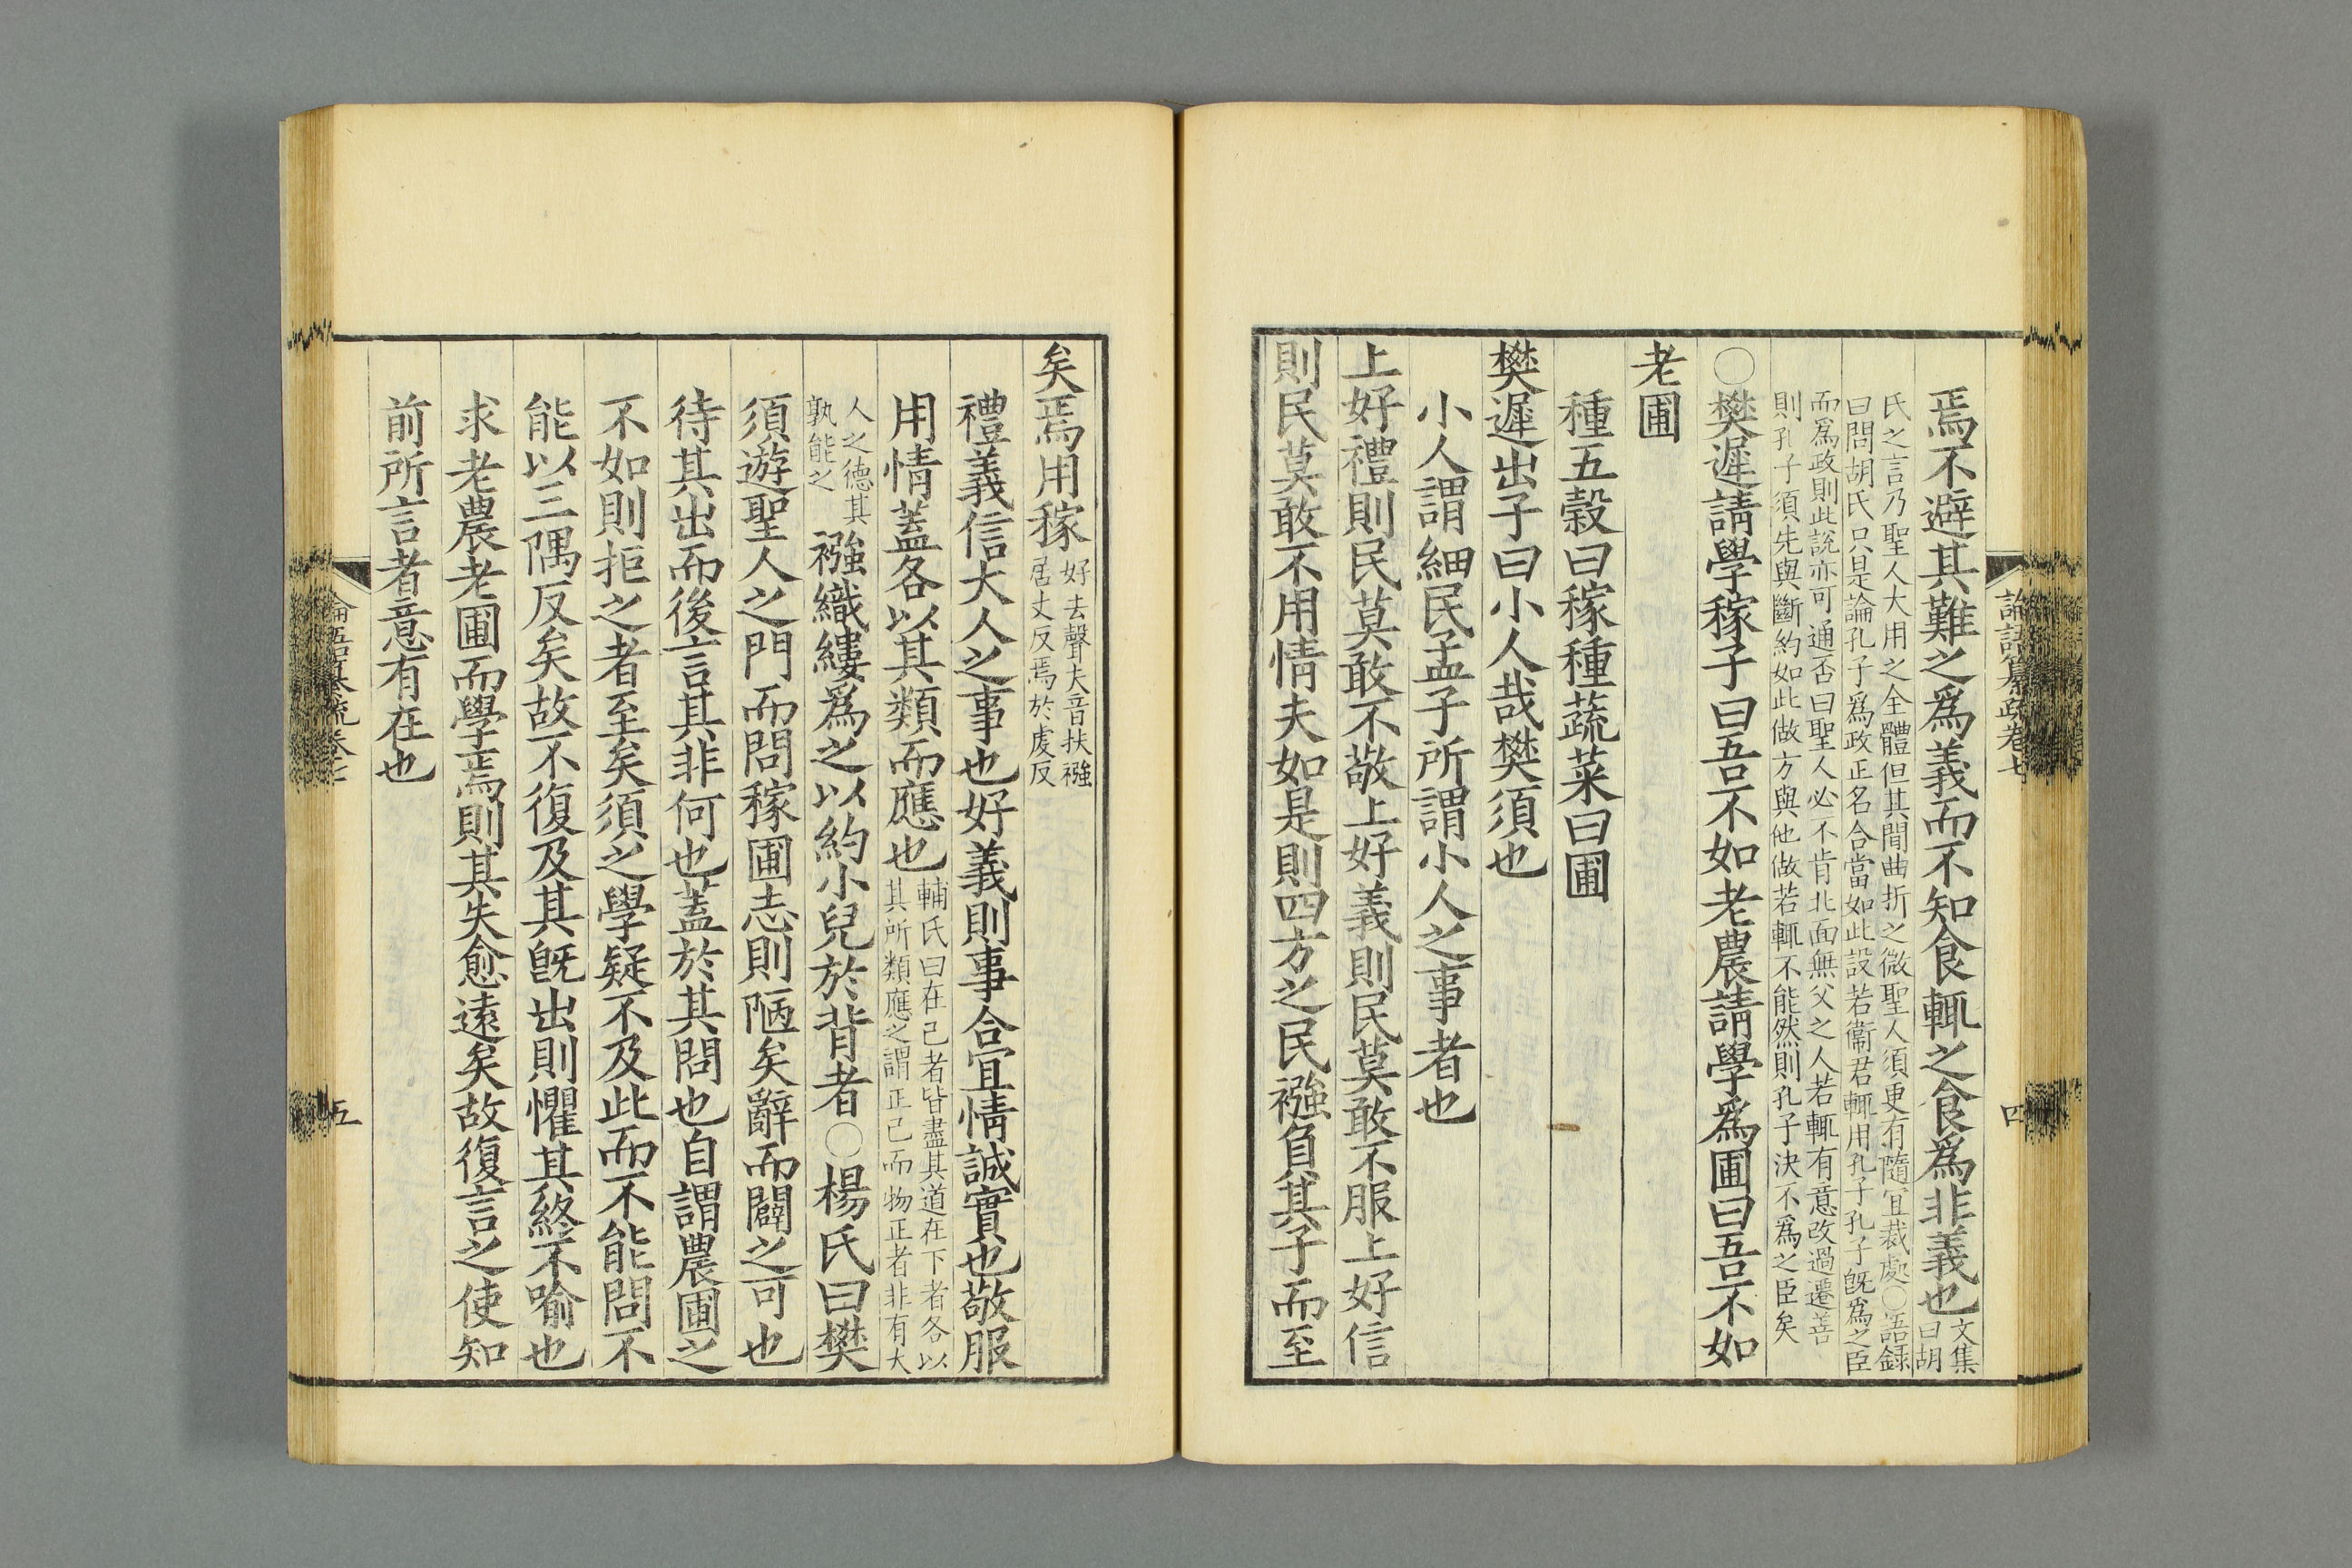 論語纂疏卷七
四
焉不避其難之爲義而不知食輒之食爲非義也文集曰胡
氏之言乃聖人大用之全體但其間曲折之微聖人須更有隨宜裁處○語録
曰問胡氏只是論孔子爲政正名合當如此設若衞君輒用孔子孔子旣爲之臣
而爲政則此說亦可通否曰聖人必不肯北面無父之人若輒有意改過遷善
則孔子須先與斷約如此做方與他做若輒不能然則孔子決不爲之臣矣
○樊遲請學稼子曰吾不如老農請學爲圃曰吾不如
老圃
種五穀曰稼種蔬菜曰圃
樊遲出子曰小人哉樊須也
小人謂細民孟子所謂小人之事者也
上好禮則民莫敢不敬上好義則民莫敢不服上好信
則民莫敢不用情夫如是則四方之民襁負其子而至
矣焉用稼好去聲夫音扶襁居丈反焉於虔反
禮義信大人之事也好義則事合宜情誠實也敬服
用情蓋各以其類而應也輔氏曰在己者皆盡其道在下者各以其所類應之謂正己而物正者非有大
人之德其孰能之襁織縷爲之以約小兒於背者○楊氏曰樊
須遊聖人之門而問稼圃志則陋矣辭而闢之可也
待其出而後言其非何也蓋於其問也自謂農圃之
不如則拒之者至矣須之學疑不及此而不能問不
能以三隅反矣故不復及其旣出則懼其終不喻也
求老農老圃而學焉則其失愈遠矣故復言之使知
前所言者意有在也
論語纂疏卷七
五